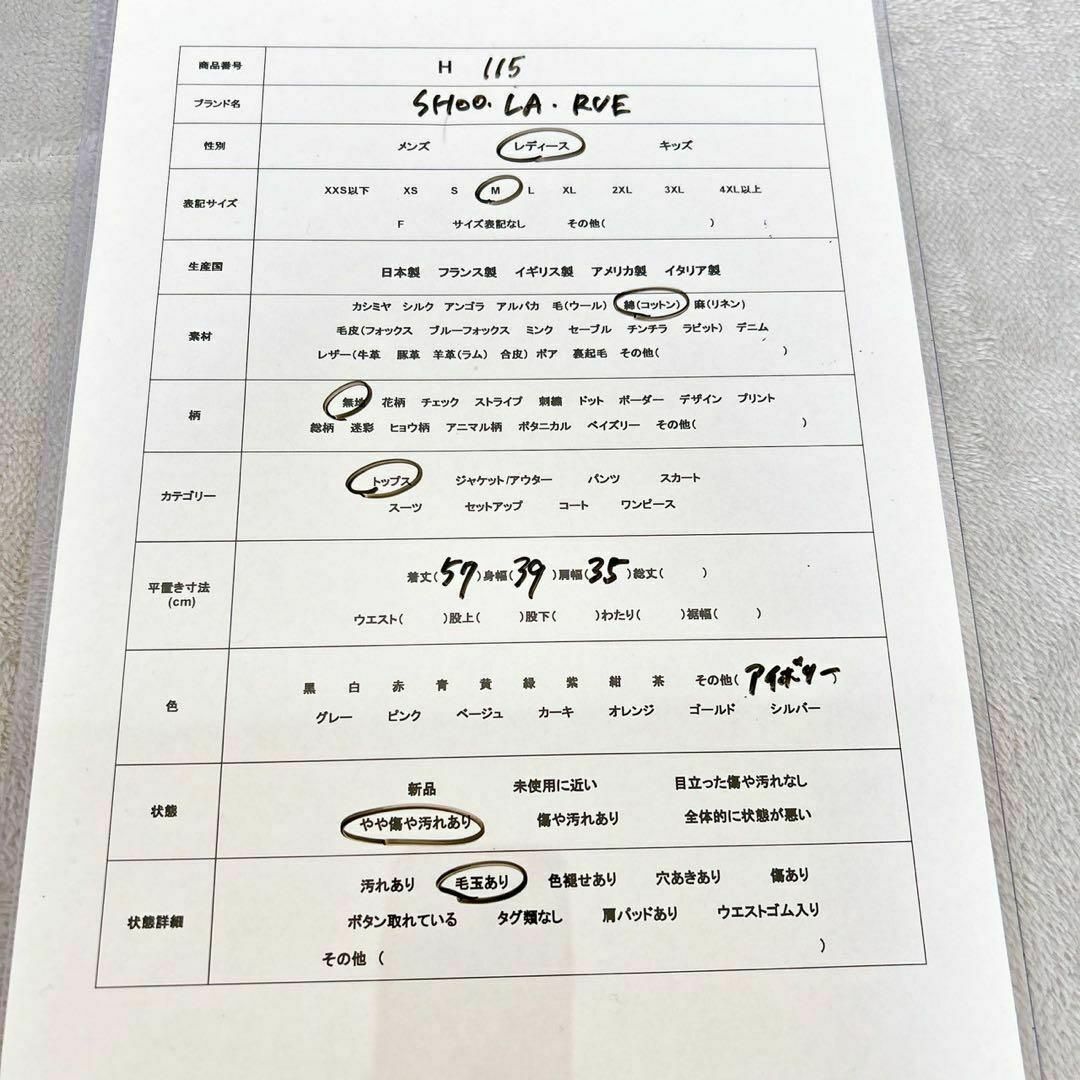 商品番号 H 115
ブランド名 SHOO・LA・RUE
性別 メンズ レディース キッズ
表記サイズ XXS以下 XS S M L XL 2XL 3XL 4XL以上
F サイズ表記なし その他( )
生産国 日本製 フランス製 イギリス製 アメリカ製 イタリア製
素材 カシミヤ シルク アンゴラ アルパカ 毛(ウール) 綿(コットン) 麻(リネン)
毛皮(フォックス ブルーフォックス ミンク セーブル チンチラ ラビット) デニム
レザー(牛革 豚革 羊革(ラム) 合皮) ボア 裏起毛 その他( )
柄 無地 花柄 チェック ストライプ 刺繍 ドット ボーダー デザイン プリント
総柄 迷彩 ヒョウ柄 アニマル柄 ボタニカル ペイズリー その他( )
カテゴリー トップス ジャケット/アウター パンツ スカート
スーツ セットアップ コート ワンピース
平置き寸法
(cm)
着丈(57)身幅(39)肩幅(35)総丈( )
ウエスト( )股上( )股下( )わたり( )裾幅( )
色 黒 白 赤 青 黄 緑 紫 紺 茶 その他(アイボリー)
グレー ピンク ベージュ カーキ オレンジ ゴールド シルバー
状態 新品 未使用に近い 目立った傷や汚れなし
やや傷や汚れあり 傷や汚れあり 全体的に状態が悪い
状態詳細 汚れあり 毛玉あり 色褪せあり 穴あきあり 傷あり
ボタン取れている タグ類なし 肩パッドあり ウエストゴム入り
その他 ( )